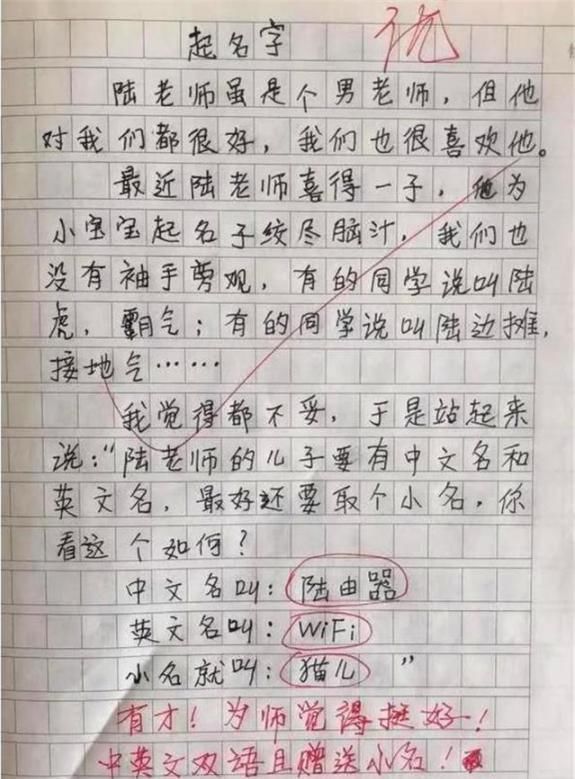 起名字
优
陆老师虽是个男老师，但他
对我们都很好，我们也很喜欢他。
最近陆老师喜得一子，他为
小宝宝起名子绞尽脑汁，我们也
没有袖手剪观，有的同学说叫陆
虎，霸气；有的同学说叫陆边摊，
接地气……
我觉得都不妥，于是站起来
说：“陆老师的儿子要有中文名和
英文名，最好还要取个小名，你
看这个如何？
中文名叫：陆由器
英文名叫：WiFi
小名就叫：猫儿”
有才！为师觉得挺好！
中英文双语且赠送小名！